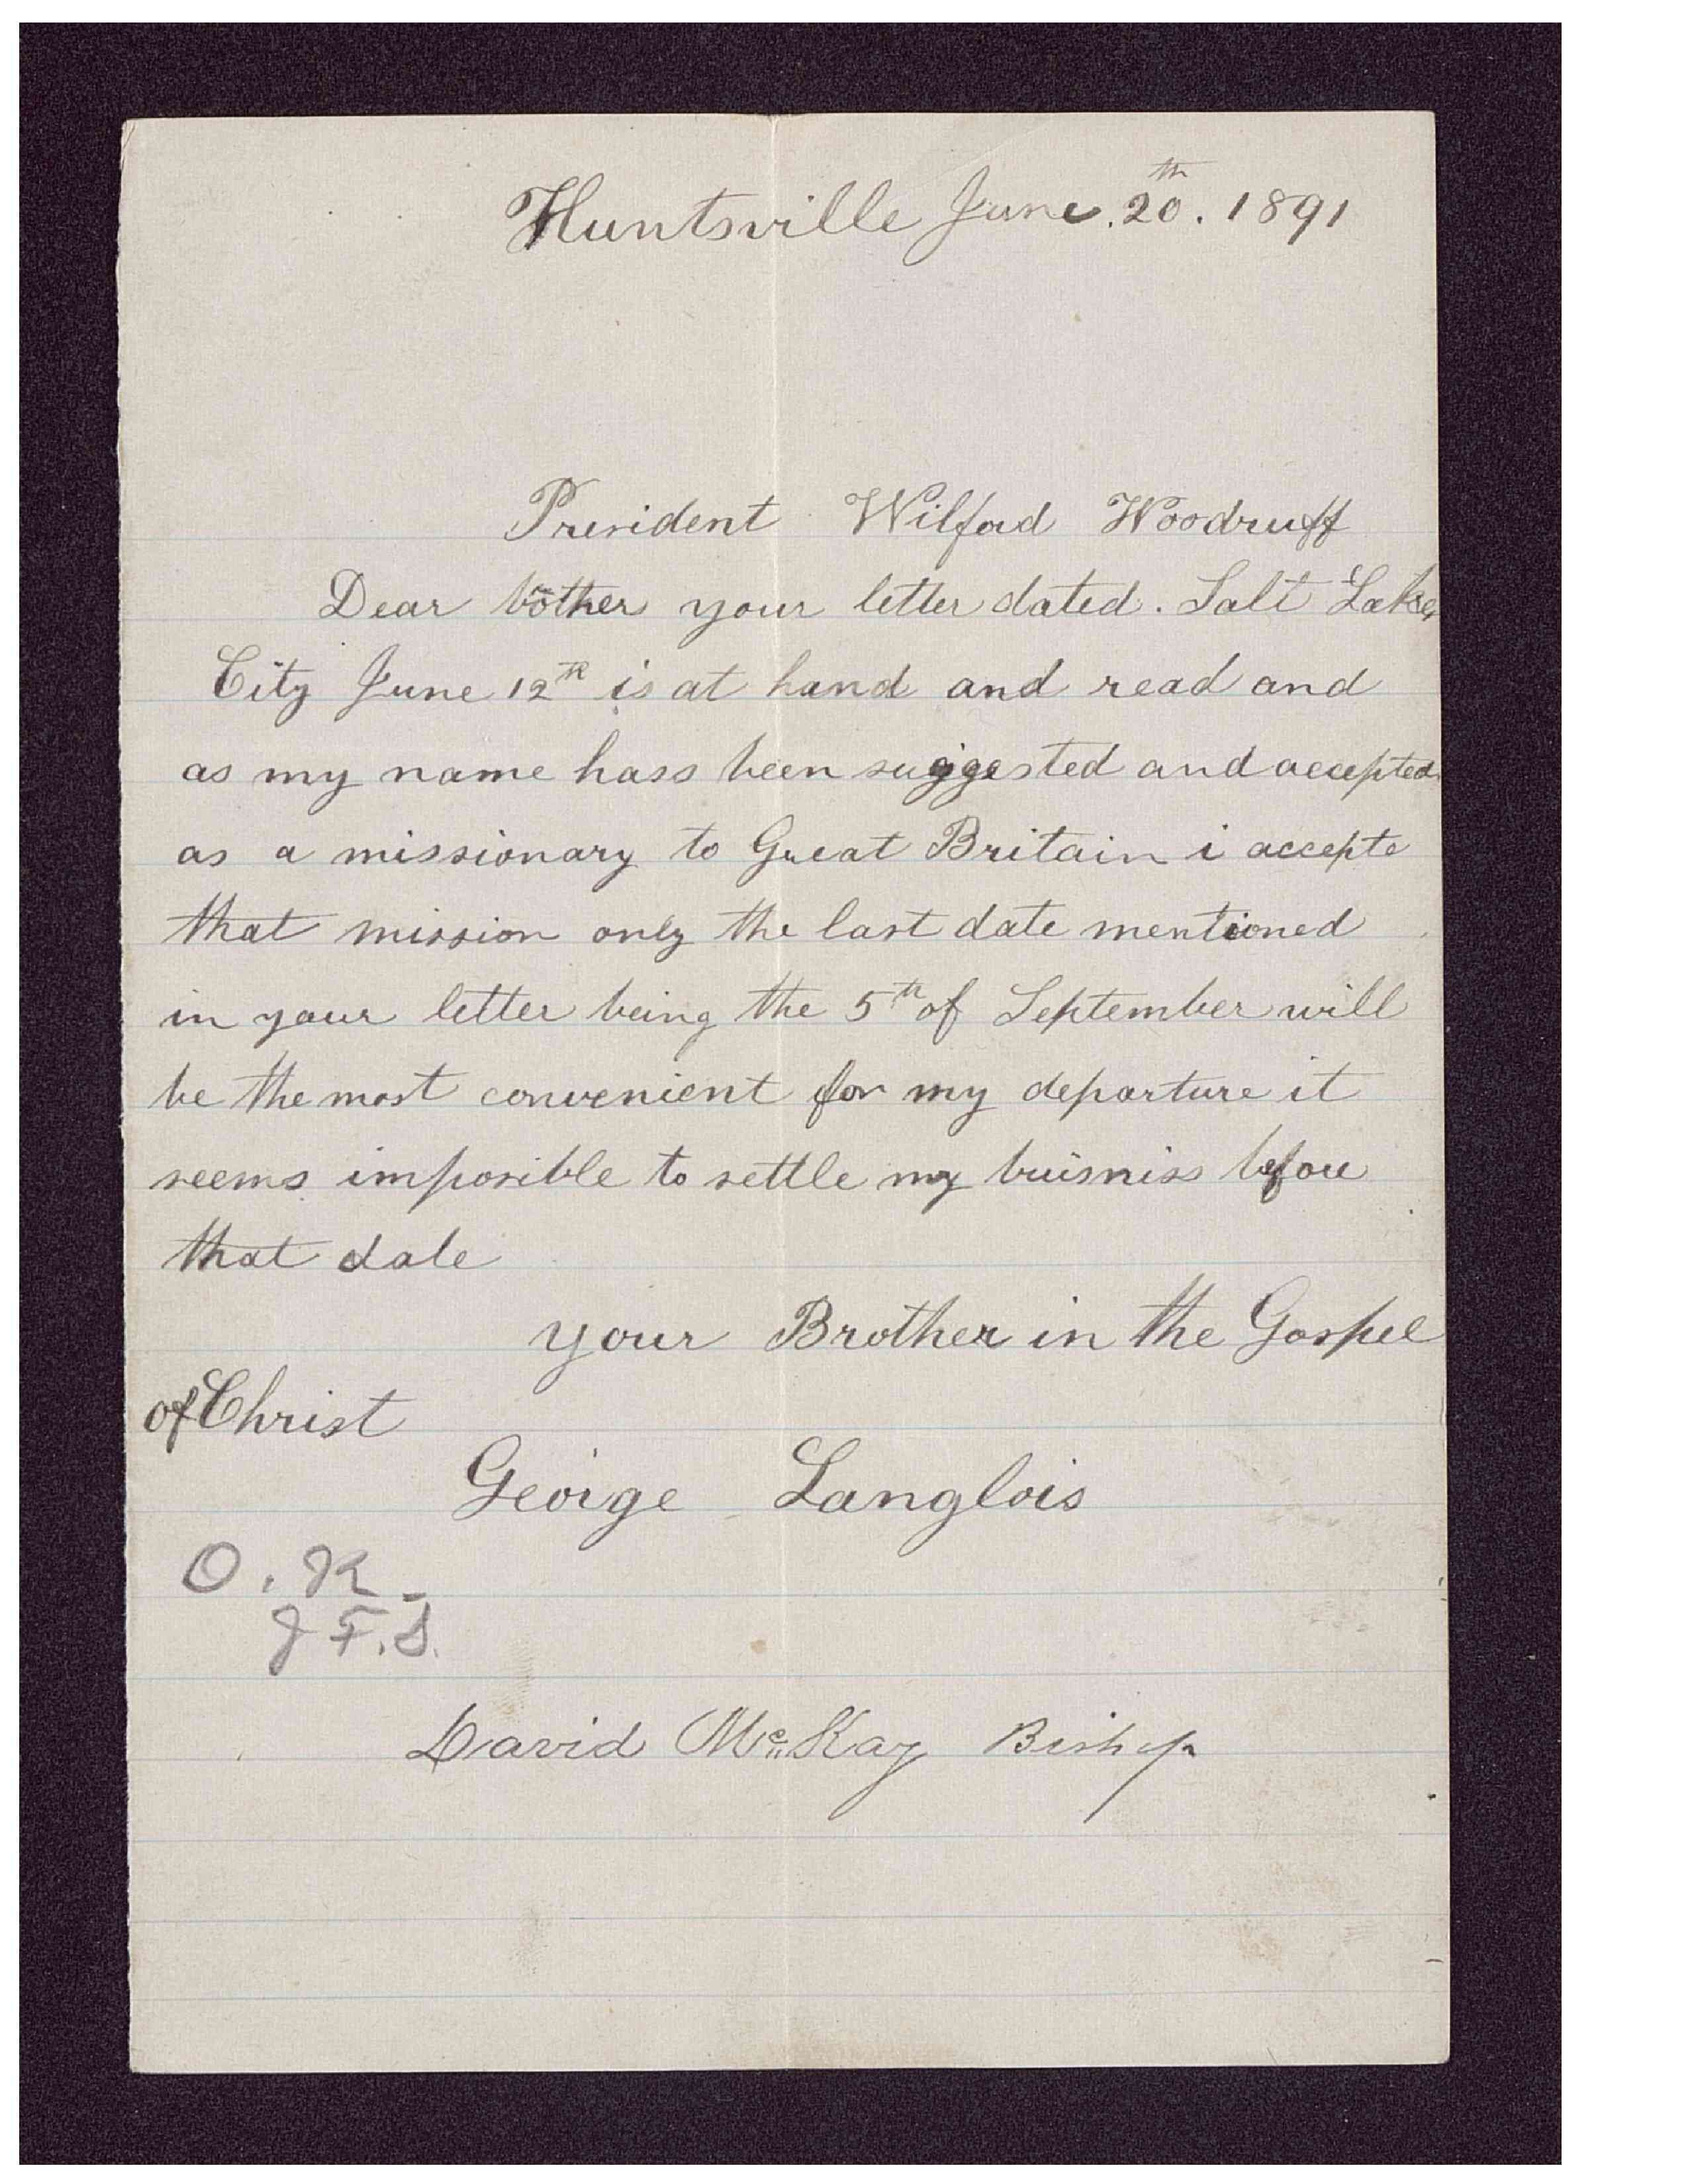 Huntsville June. 20th. 1891
President Wilford Woodruff
Dear bother your letter dated. Salt Lake
City June 12th is at hand and read and
as my name hass been suggested and accepted
as a missionary to Great Britain i accepte
that mission only the last date mentioned
in your letter being the 5th of September will
be the most convenient for my departure it
seems imposible to settle my buisniss before
that date
your Brother in the Gospel
of Christ
George Langlois
O. K.
J F. S.
David McKay Bishop